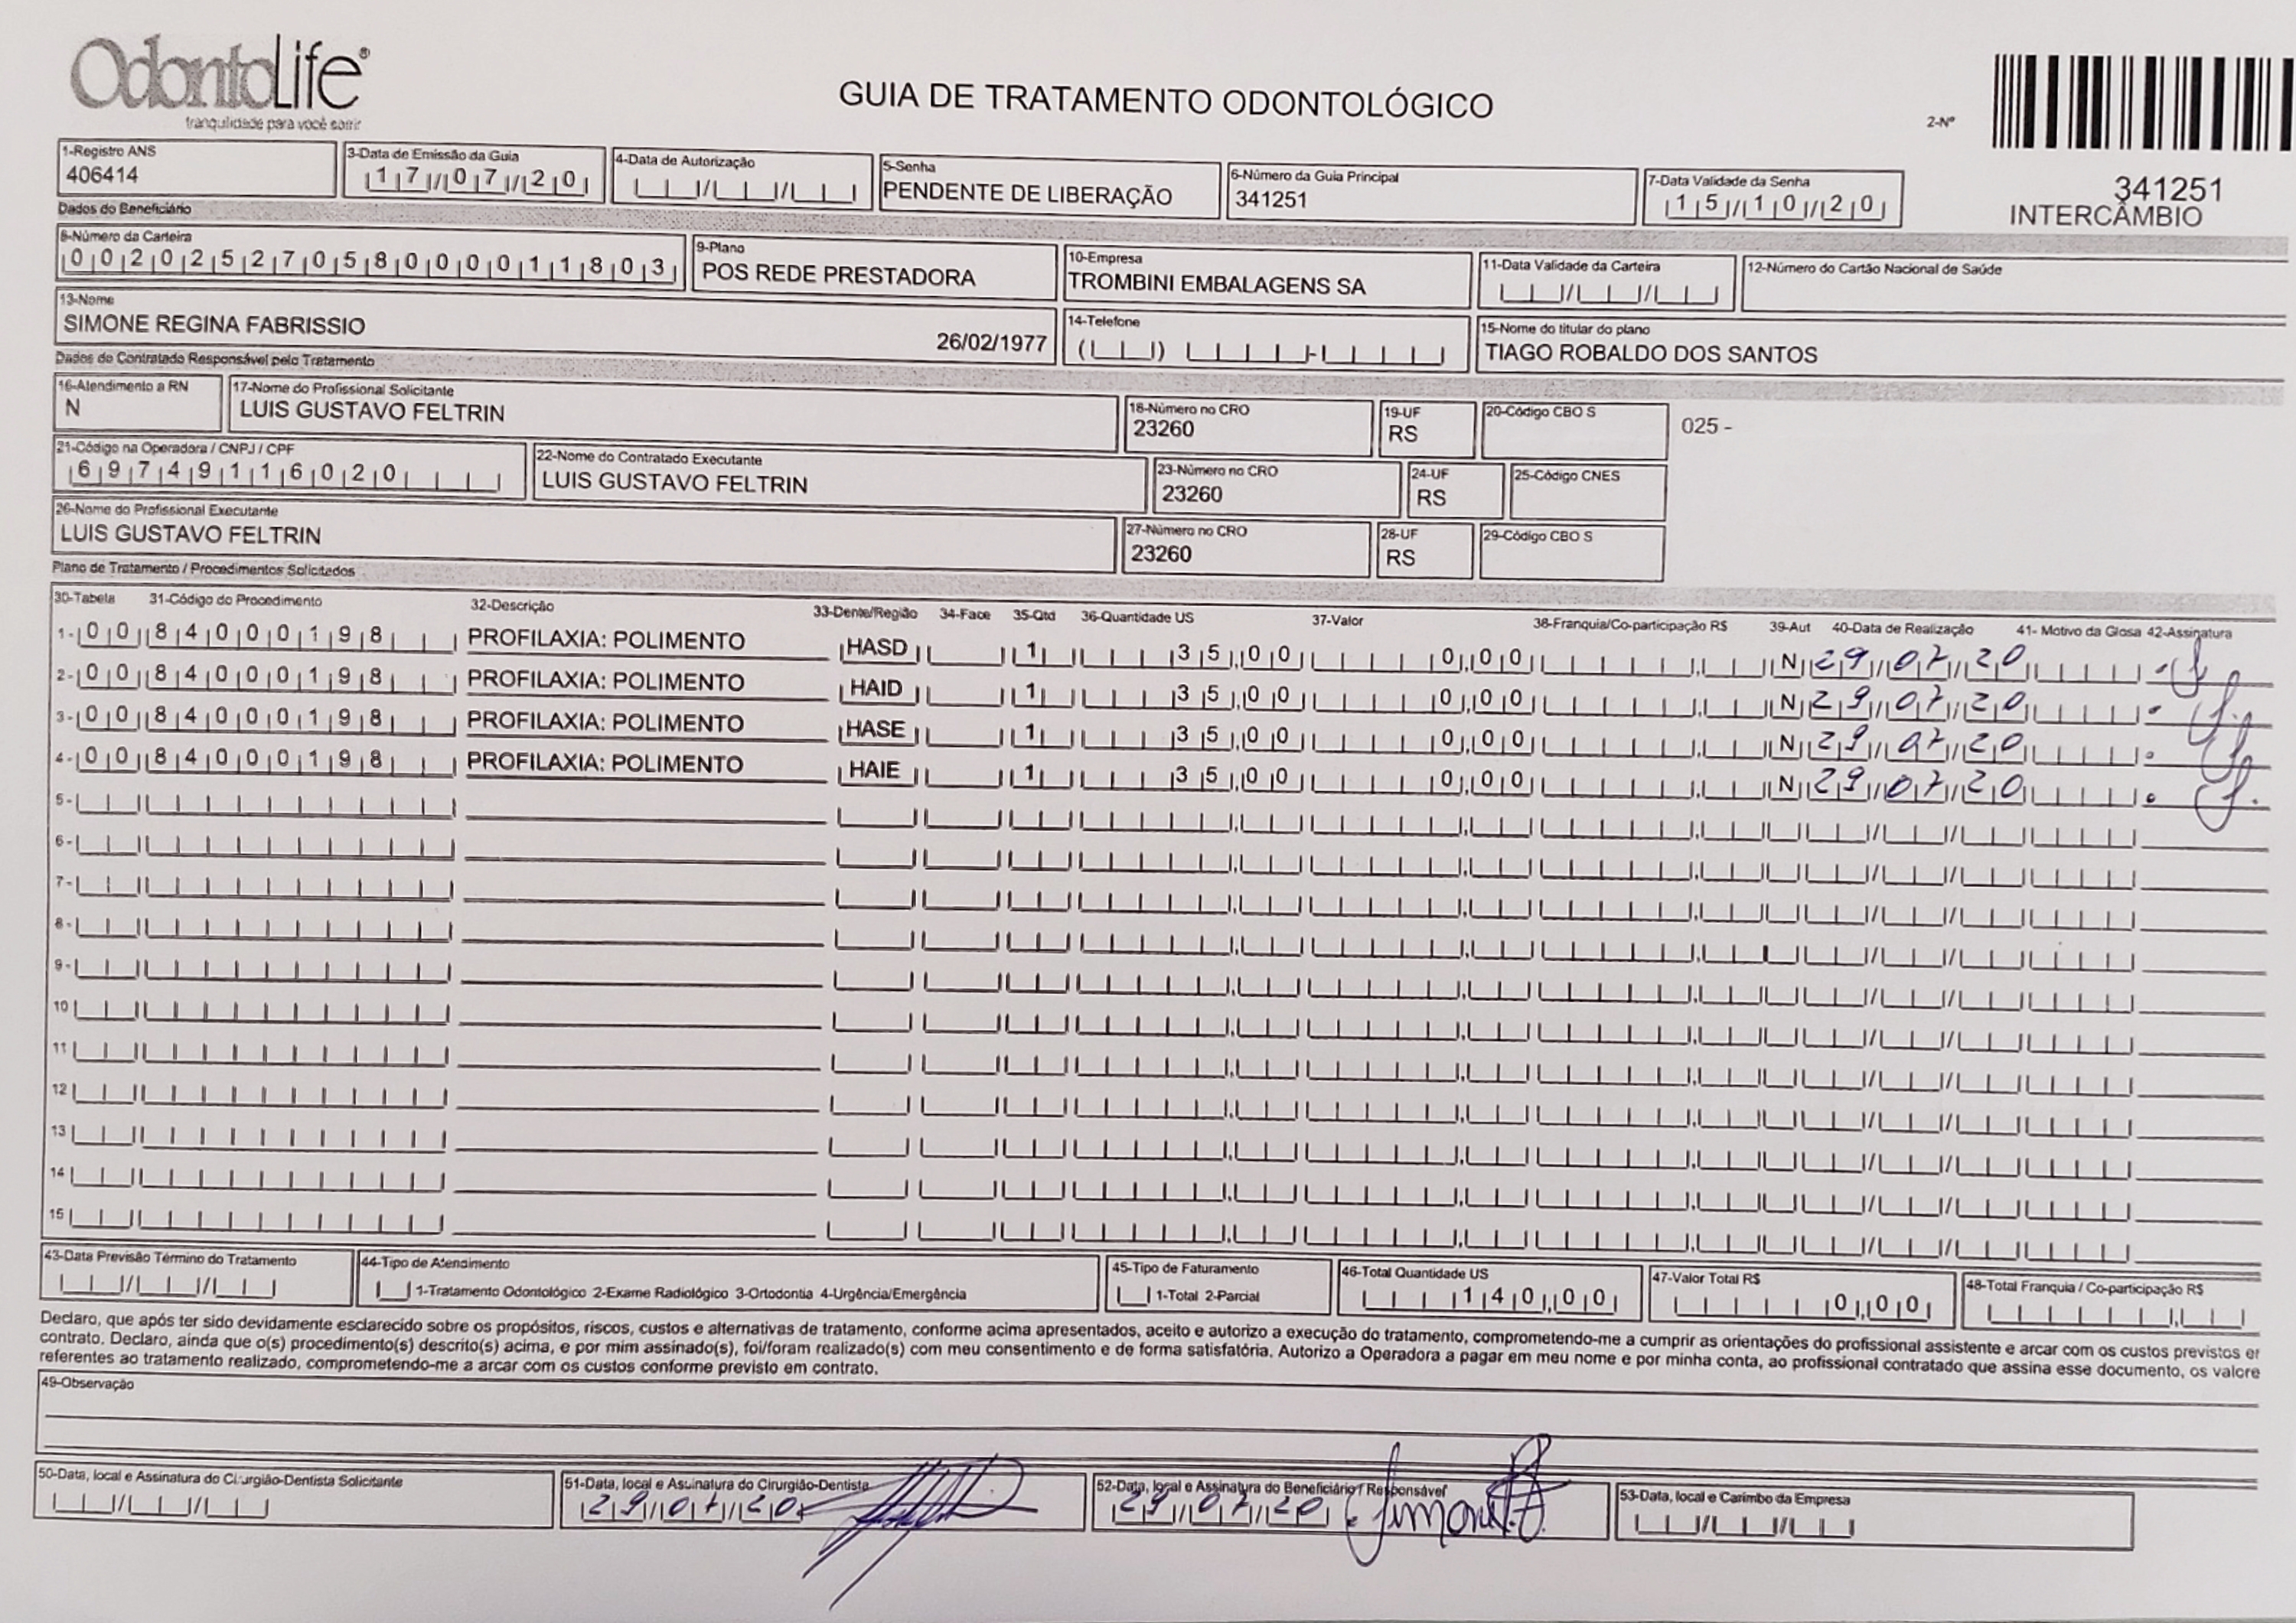 OdontoLife®
tranquilidade para você sorrir
GUIA DE TRATAMENTO ODONTOLÓGICO
2-Nº
341251
INTERCÂMBIO
1-Registro ANS
406414
3-Data de Emissão da Guia
17/07/20
4-Data de Autorização
5-Senha
PENDENTE DE LIBERAÇÃO
6-Número da Guia Principal
341251
7-Data Validade da Senha
15/10/20
Dados do Beneficiário
8-Número da Carteira
00202527058000011803
9-Plano
POS REDE PRESTADORA
10-Empresa
TROMBINI EMBALAGENS SA
11-Data Validade da Carteira
12-Número do Cartão Nacional de Saúde
13-Nome
SIMONE REGINA FABRISSIO 26/02/1977
14-Telefone
15-Nome do titular do plano
TIAGO ROBALDO DOS SANTOS
Dados do Contratado Responsável pelo Tratamento
16-Atendimento a RN
N
17-Nome do Profissional Solicitante
LUIS GUSTAVO FELTRIN
18-Número no CRO
23260
19-UF
RS
20-Código CBO S
025 -
21-Código na Operadora / CNPJ / CPF
69749116020
22-Nome do Contratado Executante
LUIS GUSTAVO FELTRIN
23-Número no CRO
23260
24-UF
RS
25-Código CNES
26-Nome do Profissional Executante
LUIS GUSTAVO FELTRIN
27-Número no CRO
23260
28-UF
RS
29-Código CBO S
Plano de Tratamento / Procedimentos Solicitados
30-Tabela 31-Código do Procedimento 32-Descrição 33-Dente/Região 34-Face 35-Qtd 36-Quantidade US 37-Valor 38-Franquia/Co-participação R$ 39-Aut 40-Data de Realização 41- Motivo da Glosa 42-Assinatura
1- 00 84000198 PROFILAXIA: POLIMENTO HASD 1 35,00 0,00 N 29/07/20
2- 00 84000198 PROFILAXIA: POLIMENTO HAID 1 35,00 0,00 N 29/07/20
3- 00 84000198 PROFILAXIA: POLIMENTO HASE 1 35,00 0,00 N 29/07/20
4- 00 84000198 PROFILAXIA: POLIMENTO HAIE 1 35,00 0,00 N 29/07/20
5-
6-
7-
8-
9-
10
11
12
13
14
15
43-Data Previsão Término do Tratamento
44-Tipo de Atendimento
1-Tratamento Odontológico 2-Exame Radiológico 3-Ortodontia 4-Urgência/Emergência
45-Tipo de Faturamento
1-Total 2-Parcial
46-Total Quantidade US
140,00
47-Valor Total R$
0,00
48-Total Franquia / Co-participação R$
Declaro, que após ter sido devidamente esclarecido sobre os propósitos, riscos, custos e alternativas de tratamento, conforme acima apresentados, aceito e autorizo a execução do tratamento, comprometendo-me a cumprir as orientações do profissional assistente e arcar com os custos previstos er
contrato. Declaro, ainda que o(s) procedimento(s) descrito(s) acima, e por mim assinado(s), foi/foram realizado(s) com meu consentimento e de forma satisfatória. Autorizo a Operadora a pagar em meu nome e por minha conta, ao profissional contratado que assina esse documento, os valore
referentes ao tratamento realizado, comprometendo-me a arcar com os custos conforme previsto em contrato.
49-Observação
50-Data, local e Assinatura do Cirurgião-Dentista Solicitante
51-Data, local e Assinatura do Cirurgião-Dentista
29/07/20
52-Data, local e Assinatura do Beneficiário / Responsável
29/07/20 Simone
53-Data, local e Carimbo da Empresa